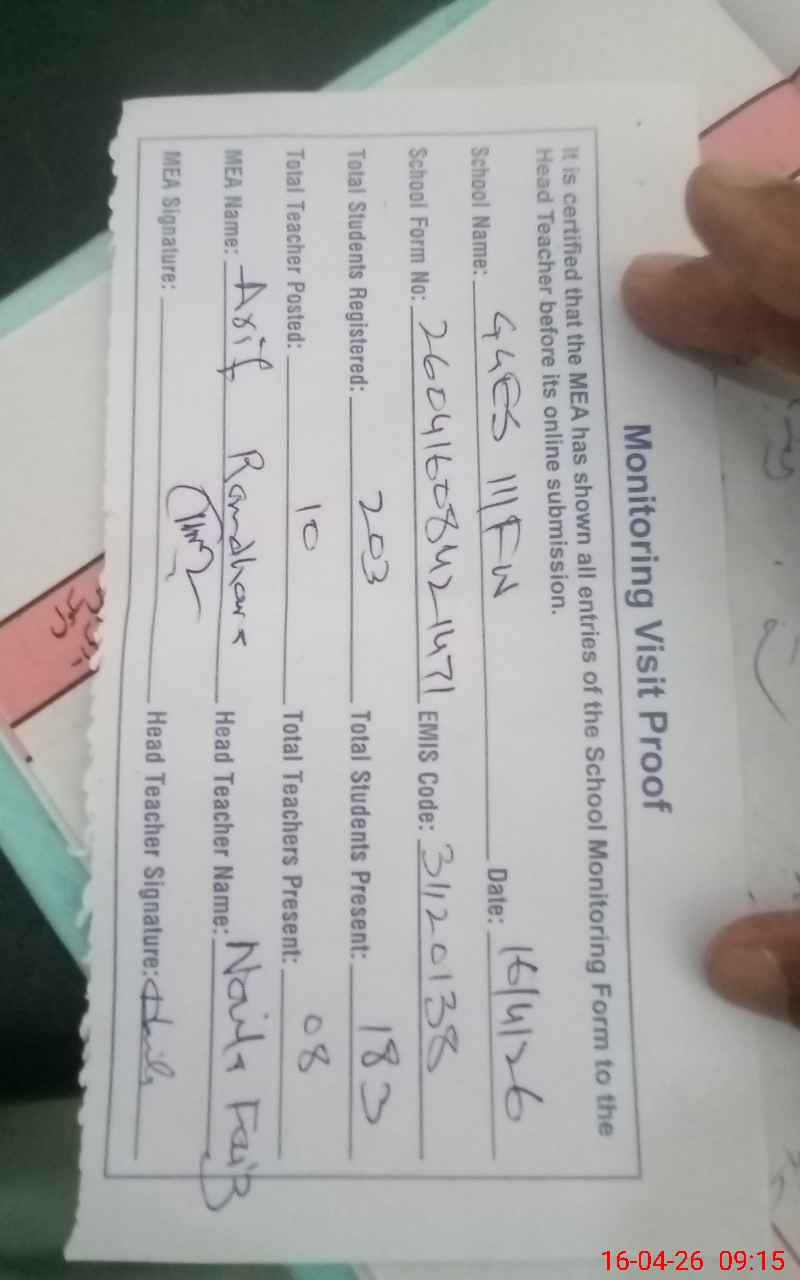 Monitoring Visit Proof
It is certified that the MEA has shown all entries of the School Monitoring Form to the
Head Teacher before its online submission.
School Name: GGES 111/FW Date: 16/4/26
School Form No: 26041608421471 EMIS Code: 31120138
Total Students Registered: 203 Total Students Present: 183
Total Teacher Posted: 10 Total Teachers Present: 08
MEA Name: Arif Randhawa Head Teacher Name: Naila Faiz
MEA Signature: Head Teacher Signature: Naila
16-04-26 09:15